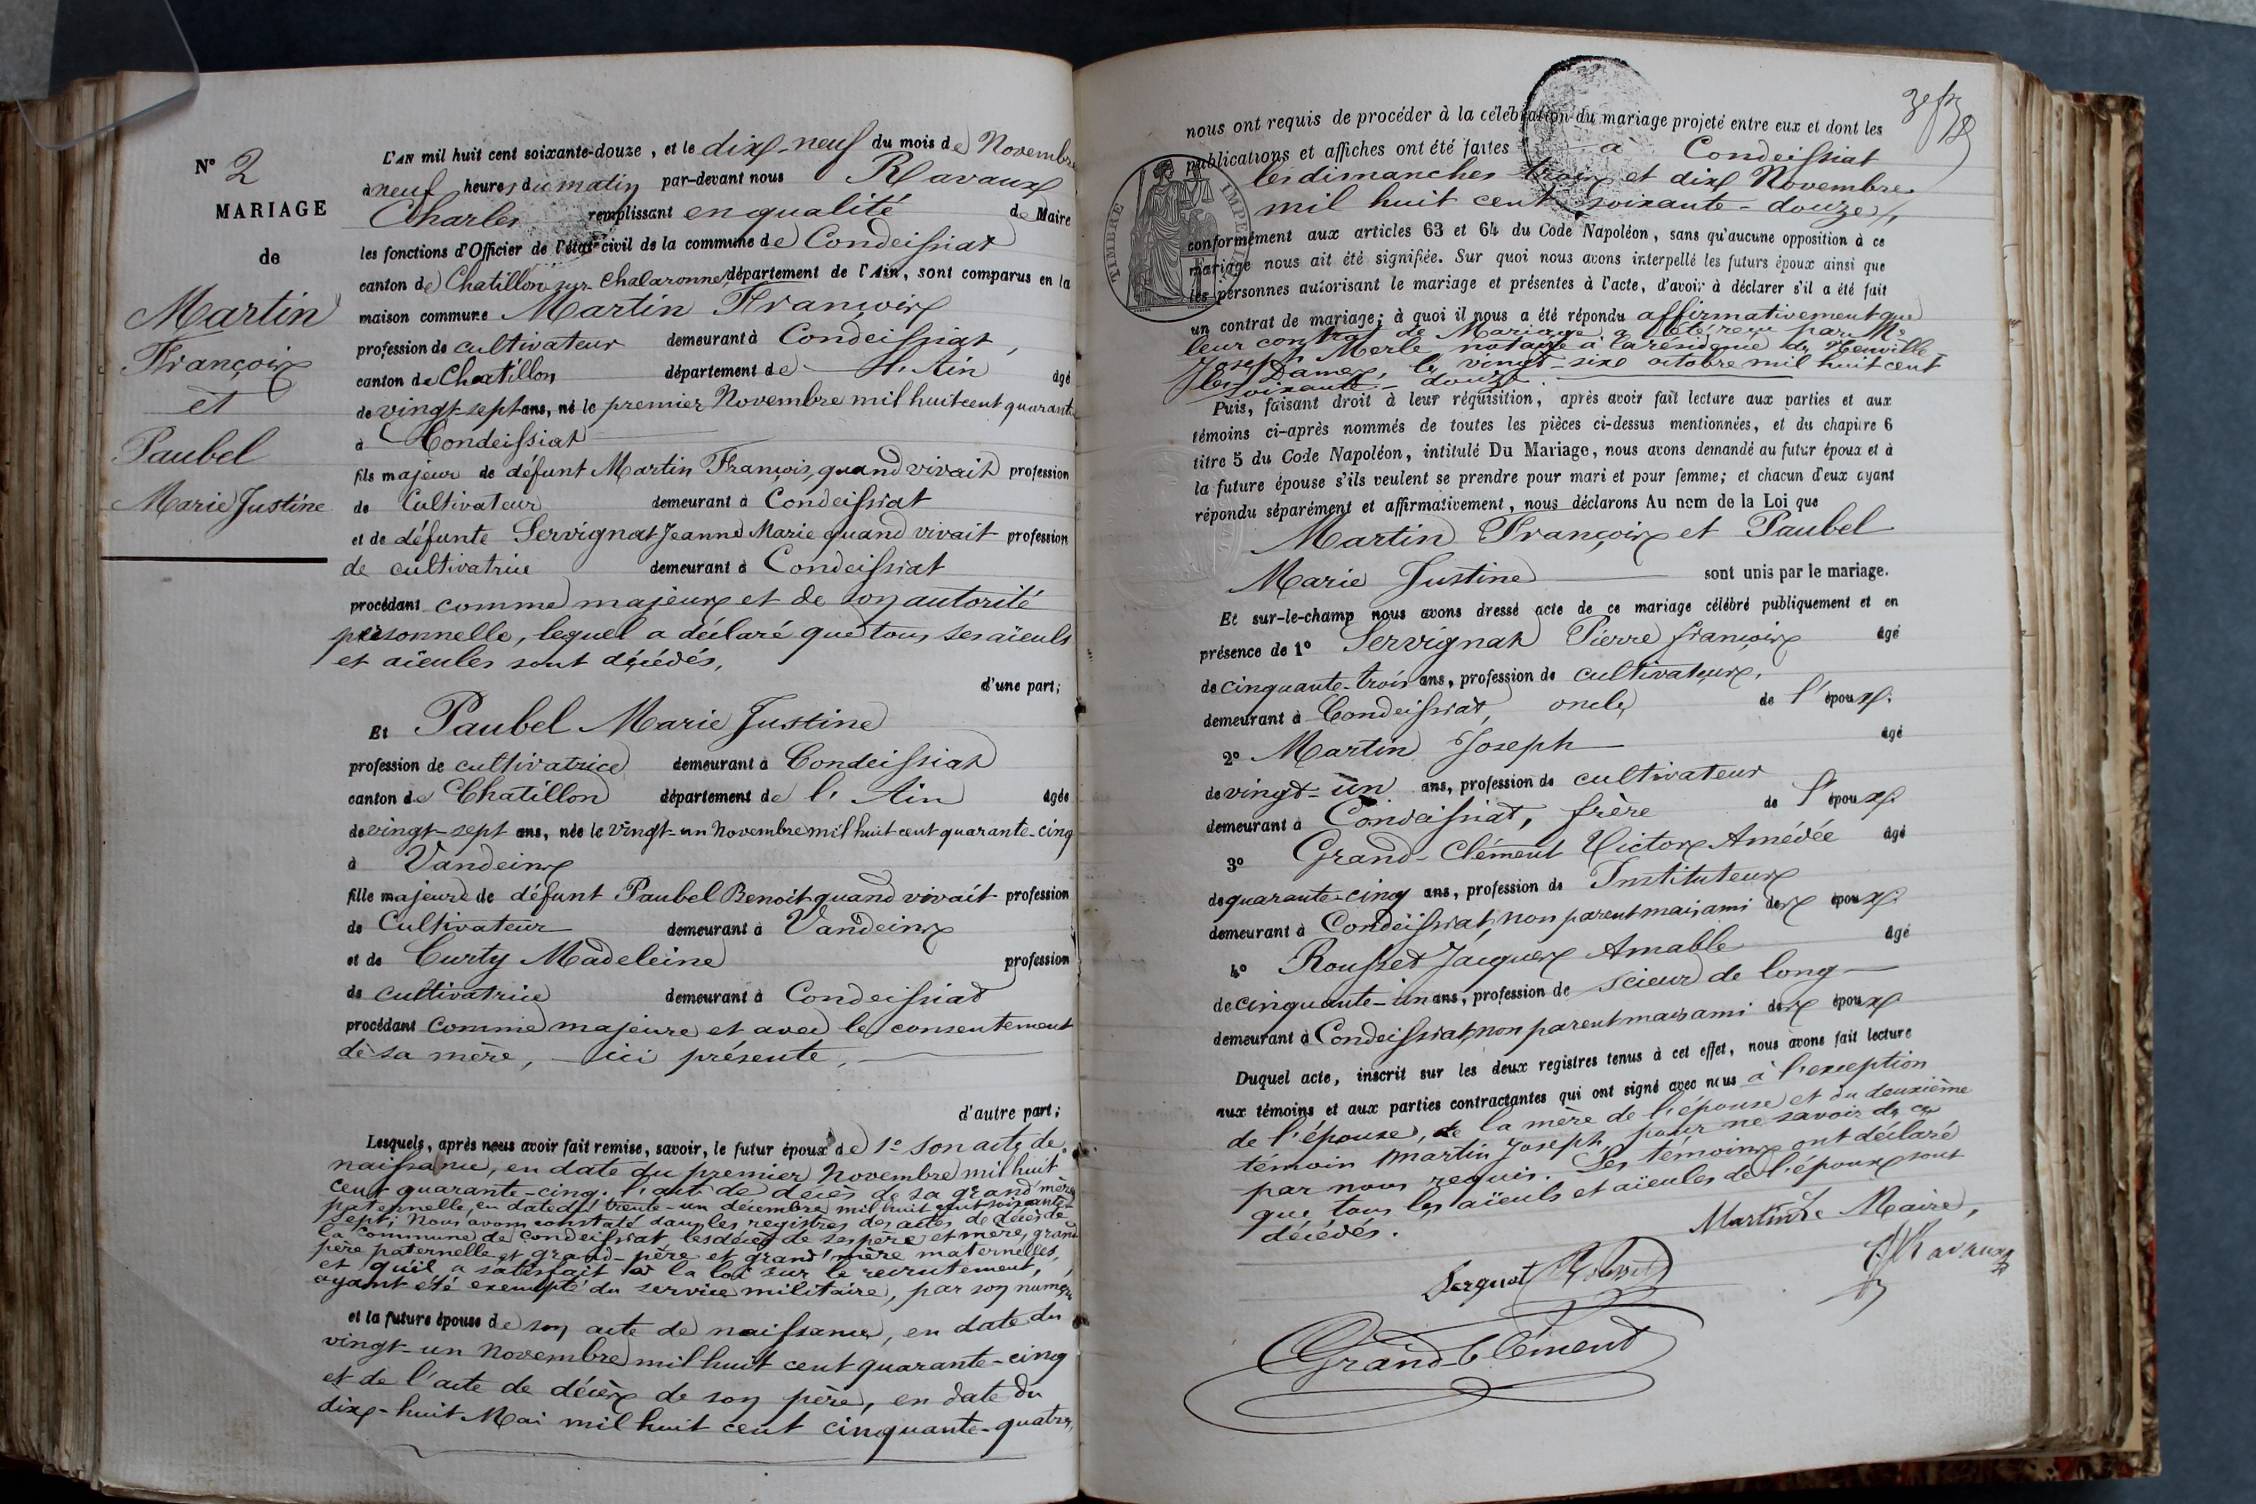 N° 2
MARIAGE
de
Martin
François
et
Paubel
Marie Justine
L'AN mil huit cent soixante-douze, et le dix-neuf du mois de Novembre
à neuf heures du matin par-devant nous Ravaux
Charles remplissant en qualité de Maire
les fonctions d'Officier de l'état civil de la commune de Condeissiat
canton de Chatillon sur Chalaronne, département de l'Ain, sont comparus en la
maison commune Martin François
profession de cultivateur demeurant à Condeissiat,
canton de Chatillon département de l'Ain âgé
de vingt-sept ans, né le premier Novembre mil huit cent quarante
à Condeissiat
fils majeur de défunt Martin François, quand vivait profession
de Cultivateur demeurant à Condeissiat
et de défunte Servignat Jeanne Marie quand vivait profession
de cultivatrice demeurant à Condeissiat
procédant comme majeur et de son autorité
personnelle, lequel a déclaré que tous ses aïeuls
et aïeules sont décédés,
d'une part;
Et Paubel Marie Justine
profession de cultivatrice demeurant à Condeissiat
canton de Chatillon département de l'Ain âgée
de vingt-sept ans, née le vingt-un Novembre mil huit cent quarante-cinq
à Vandeins
fille majeure de défunt Paubel Benoit quand vivait profession
de Cultivateur demeurant à Vandeins
et de Curty Madeleine profession
de cultivatrice demeurant à Condeissiat
procédant comme majeure et avec le consentement
de sa mère, ici présente,
d'autre part;
Lesquels, après nous avoir fait remise, savoir, le futur époux de 1° son acte de
naissance, en date du premier Novembre mil huit
cent quarante-cinq. l'acte de décès de sa grand'mère
paternelle, en date du trente-un décembre mil huit cent soixante
sept; Nous avons constaté dans les registres des actes de décès de
la commune de Condeissiat les décès de ses père et mère, grand
père paternelle et grand-père et grand'mère maternelles,
et qu'il a satisfait à la loi sur le recrutement,
ayant été exempté du service militaire, par son numéro
et la future épouse de son acte de naissance, en date du
vingt-un Novembre mil huit cent quarante-cinq
et de l'acte de décès de son père, en date du
dix-huit Mai mil huit cent cinquante-quatre,
nous ont requis de procéder à la célébration du mariage projeté entre eux et dont les
publications et affiches ont été faites à Condeissiat
les dimanches trois et dix Novembre
mil huit cent soixante-douze,
TIMBRE IMPE
conformément aux articles 63 et 64 du Code Napoléon, sans qu'aucune opposition à ce
mariage nous ait été signifiée. Sur quoi nous avons interpellé les futurs époux ainsi que
les personnes autorisant le mariage et présentes à l'acte, d'avoir à déclarer s'il a été fait
un contrat de mariage; à quoi il nous a été répondu affirmativement que
leur contrat de Mariage a été reçu par Me
Joseph Merle notaire à la résidence de Neuville-
les Dames, le vingt-six octobre mil huit cent
soixante-douze.
Puis, faisant droit à leur réquisition, après avoir fait lecture aux parties et aux
témoins ci-après nommés de toutes les pièces ci-dessus mentionnées, et du chapitre 6
titre 5 du Code Napoléon, intitulé Du Mariage, nous avons demandé au futur époux et à
la future épouse s'ils veulent se prendre pour mari et pour femme; et chacun d'eux ayant
répondu séparément et affirmativement, nous déclarons Au nom de la Loi que
Martin François et Paubel
Marie Justine sont unis par le mariage.
Et sur-le-champ nous avons dressé acte de ce mariage célébré publiquement et en
présence de 1° Servignat Pierre françois âgé
de cinquante-trois ans, profession de cultivateur,
demeurant à Condeissiat, oncle de l'époux.
2° Martin Joseph âgé
de vingt-un ans, profession de cultivateur
demeurant à Condeissiat, frère de l'époux.
3° Grand-Clément Victor Amédée âgé
de quarante-cinq ans, profession de Instituteur
demeurant à Condeissiat, non parent mais ami des époux.
4° Rousset Jacques Amable âgé
de cinquante-un ans, profession de scieur de long
demeurant à Condeissiat, non parent mais ami des époux
Duquel acte, inscrit sur les deux registres tenus à cet effet, nous avons fait lecture
aux témoins et aux parties contractantes qui ont signé avec nous à l'exception
de l'épouse, de la mère de l'épouse et du deuxième
témoin Martin Joseph, pour ne savoir de ce
par nous requis. Les témoins ont déclaré
que tous les aïeuls et aïeules de l'époux sont
décédés.
Martin Le Maire,
Ravaux
Grand-Clément